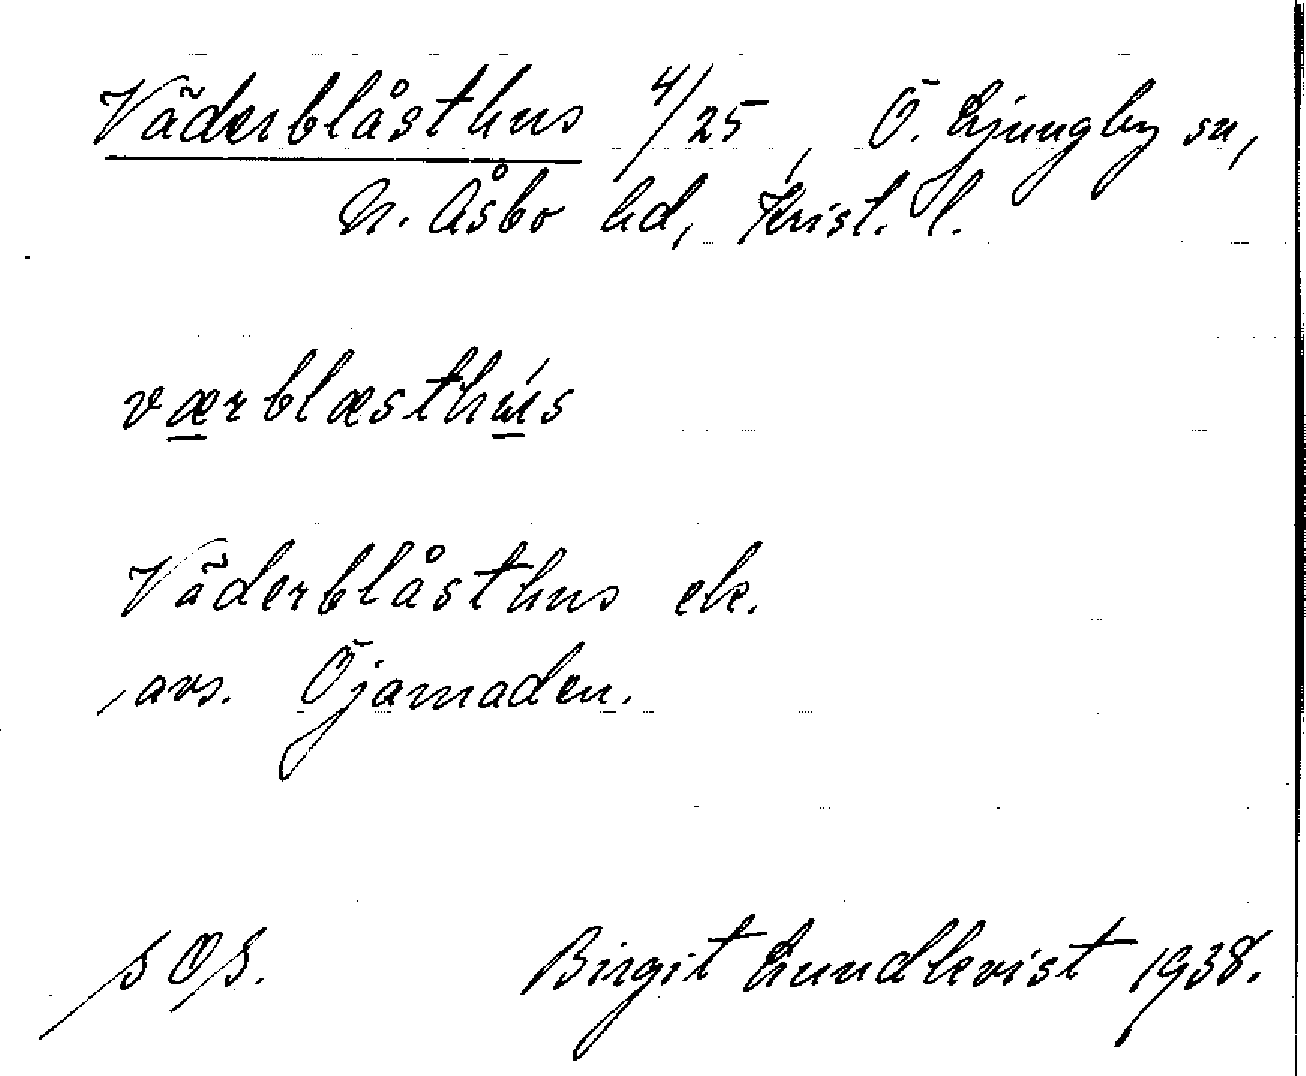 Väderblåsthus 4/25, Ö. Ljungby sn,
N. Åsbo hd, Krist. l.
værblæsthús
Väderblåsthus ek.
avs. Öjamaden.
sOs.
Birgit Lundkvist 1938.